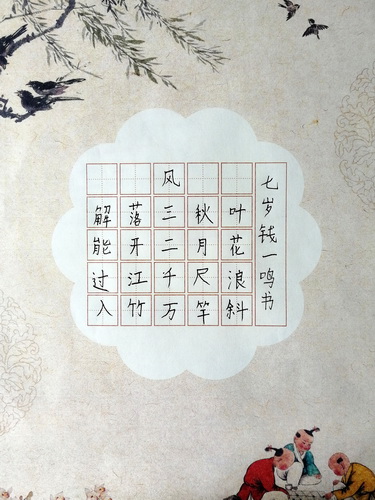 风
解落三秋叶
能开二月花
过江千尺浪
入竹万竿斜
七岁钱一鸣书